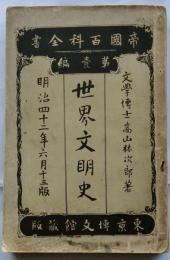 帝國百科全書
第壹編
文學博士高山林次郎著
世界文明史
明治四十二年六月十三版
東京博文館蔵版